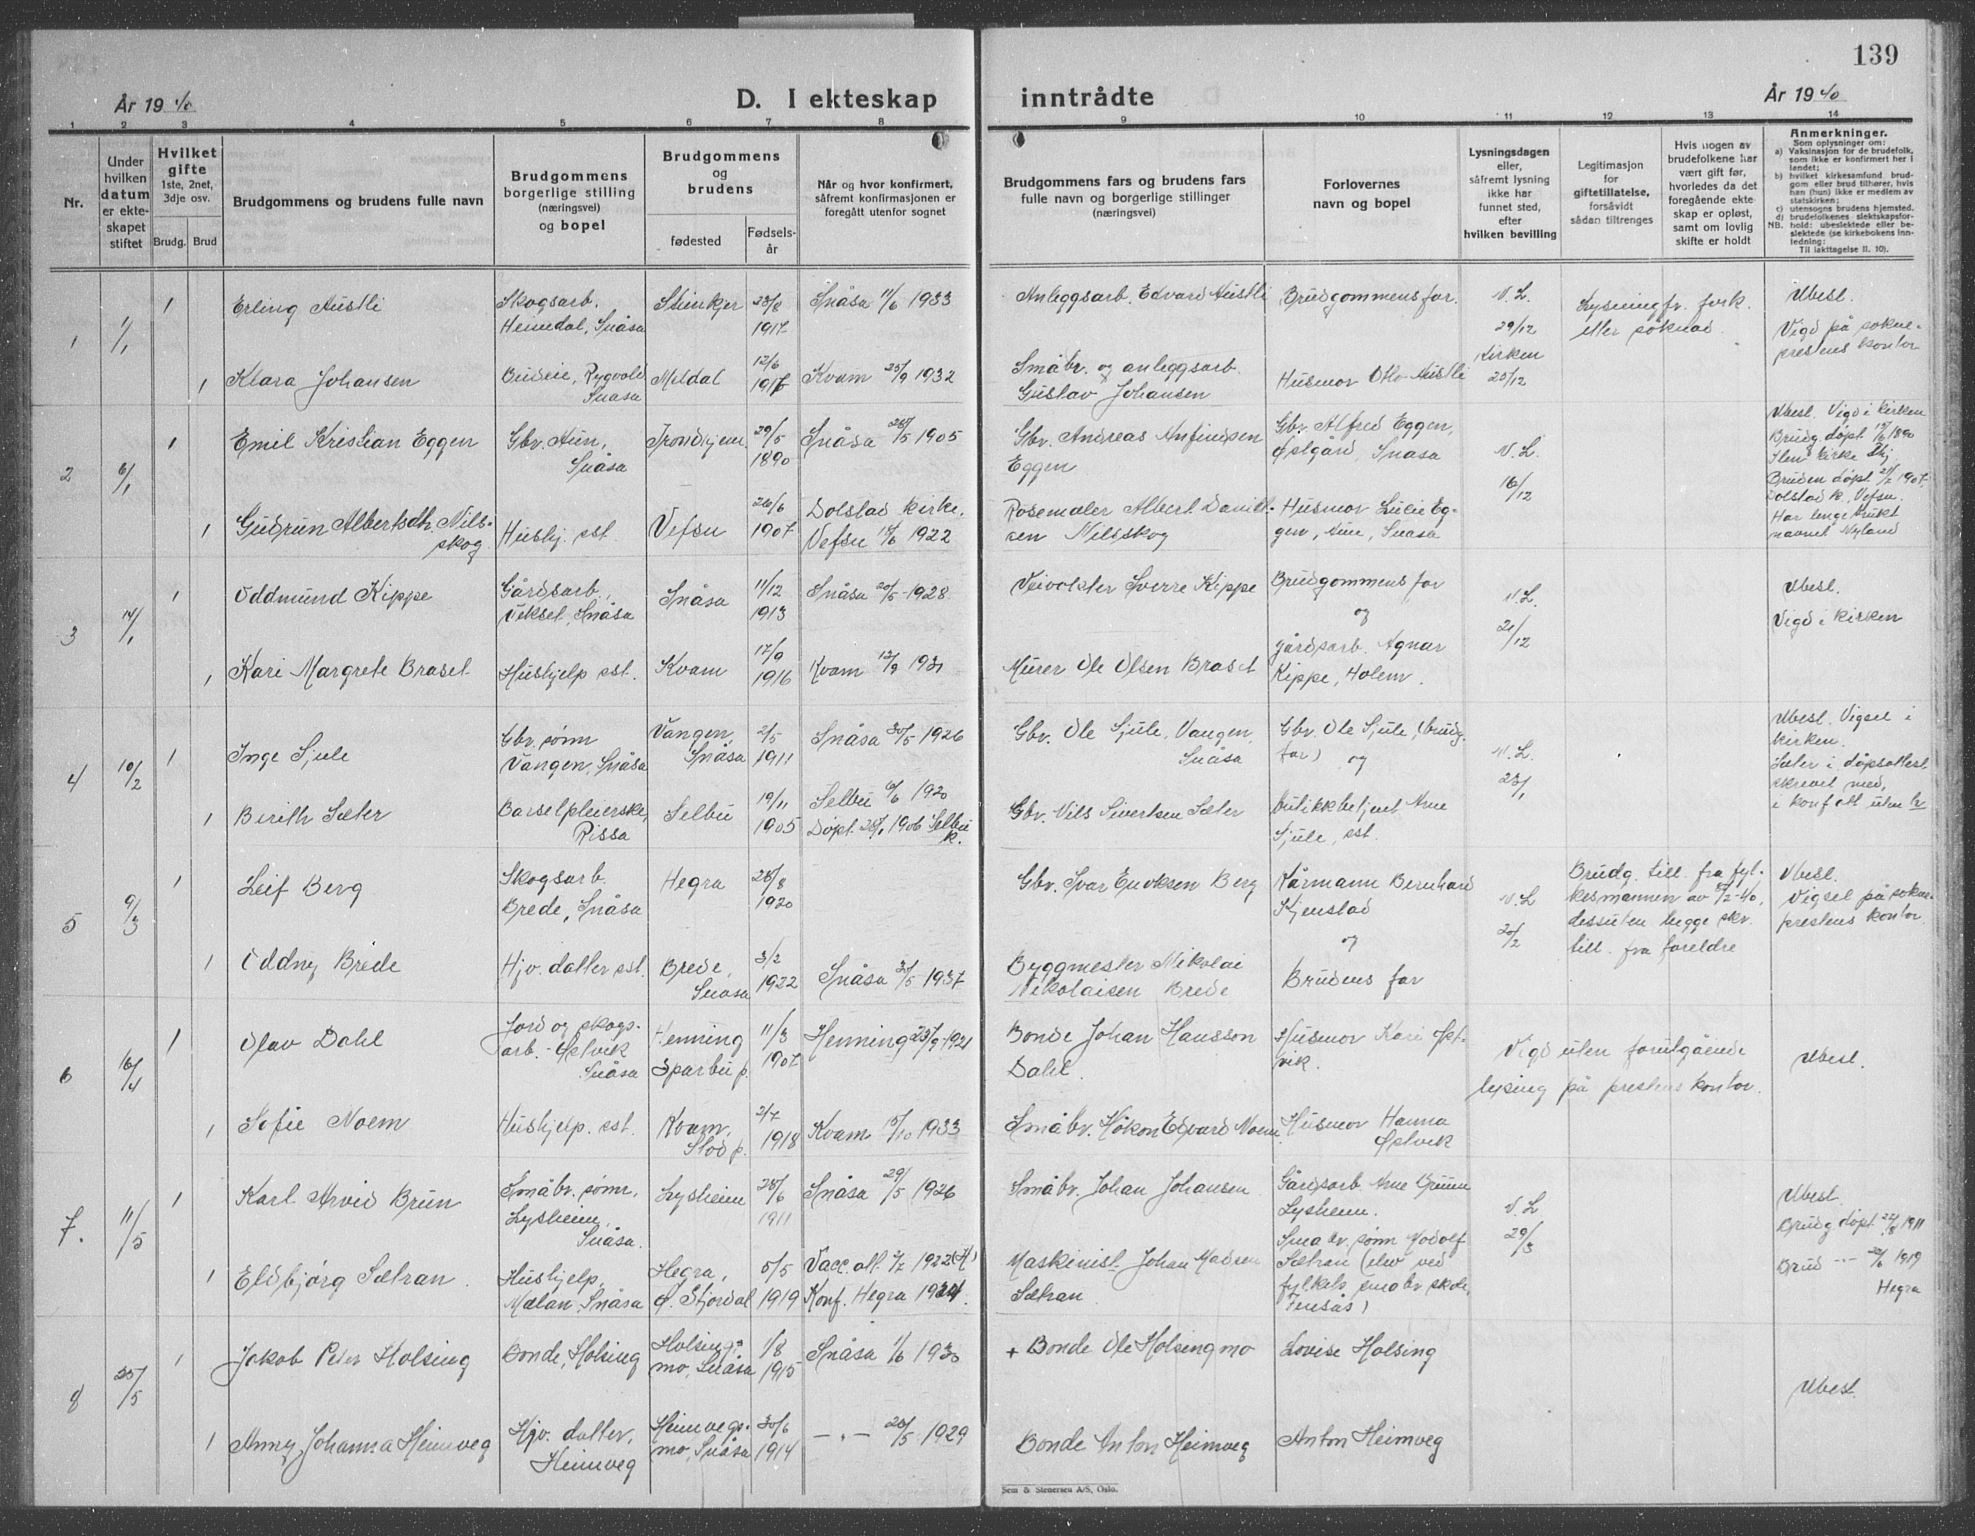 139
År 1940
D. I ekteskap
inntrådte
År 1940
1 2 3 4 5 6 7 8 9 10 11 12 13 14
Nr.
Under
hvilken
datum
er ekte-
skapet
stiftet
Hvilket
gifte
1ste, 2net,
3dje osv.
Brudg. Brud
Brudgommens og brudens fulle navn
Brudgommens
borgerlige stilling
(næringsvei)
og bopel
Brudgommens
og
brudens
fødested
Fødsels-
år
Når og hvor konfirmert,
såfremt konfirmasjonen er
foregått utenfor sognet
Brudgommens fars og brudens fars
fulle navn og borgerlige stillinger
(næringsvei)
Forlovernes
navn og bopel
Lysningsdagen
eller,
såfremt lysning
ikke har
funnet sted,
efter
hvilken bevilling
Legitimasjon
for
giftetillatelse,
forsåvidt
sådan tiltrenges
Hvis nogen av
brudefolkene har
vært gift før,
hvorledes da det
foregående ekte
skap er opløst,
samt om lovlig
skifte er holdt
Anmerkninger.
Som oplysninger om:
a) Vaksinasjon for de brudefolk,
som ikke er konfirmert her i
landet;
b) hvilket kirkesamfund brud-
gom eller brud tilhører, hvis
han (hun) ikke er medlem av
statskirken;
c) utensogns brudens hjemsted.
d) brudefolkenes slektskapsfor-
NB. hold: ubeslektede eller be-
slektede (se kirkebokens inn-
ledning:
Til iakttagelse II. 10).
1 1/1
1 Erling Austli
Skogsarb.
Heimdal, Snåsa
Steinkjer
23/8
1917
Snåsa 11/6 1933
Anleggsarb. Edvard Austli
Brudgommens far.
N.L.
29/12
Lysning fr. fork.
etter søknad.
Ubesl.
Vigd på sokne-
prestens kontor
1 Klara Johansen
Budeie, Rygvold
Snåsa
Meldal
12/6
1917
Kvam 25/9 1932
Småbr. og anleggsarb.
Gustav Johansen
Husmor Otto Austli
Kirken
23/12
2 6/1
1 Emil Kristian Eggen
Gbr. Aun,
Snåsa
Trondhjem
29/5
1890
Snåsa 28/5 1905
Gbr. Andreas Anfindsen
Eggen
Gbr. Alfred Eggen,
Østgård, Snåsa
N.L.
16/12
Ubesl. Vigd i kirken
Brudg. døpt 15/6 1890
Ilen kirke Thj
Bruden døpt 21/7 1907
Dolstad k., Vefsn.
Har lenge brukt
navnet Nyland
1 Gudrun Albertsdtr. Nils-
skog
Hushj. sst.
Vefsn
26/6
1907
Dolstad kirke,
Vefsn 15/6 1922
Rosemaler Albert Daniel-
sen Nilsskog
Husmor Lucie Eg-
gen, Aun, Snåsa
3 14/1
1 Oddmund Kippe
Gårdsarb.,
Vekset, Snåsa
Snåsa
11/12
1913
Snåsa 20/5 1928
Veivokter Sverre Kippe
Brudgommens far
og
N.L.
21/12
Ubesl.
Vigd i kirken
1 Kari Margrete Braset
Hushjelp sst.
Kvam
17/9
1916
Kvam 13/9 1931
Murer Ole Olsen Braset
gårdsarb. Agnar
Kippe, Holem.
4 10/2
1 Inge Sjule
Gbr. sønn
Vangen, Snåsa
Vangen,
Snåsa
2/5
1911
Snåsa 30/5 1926
Gbr. Ole Sjule, Vangen,
Snåsa
Gbr. Ole Sjule, (brudg.
far) og
N.L.
23/1
Ubesl. Vigsel i
kirken.
Sæter i døpsattest
skrevet med,
i konf. att. uten h
1 Berith Sæter
Barselpleierske,
Rissa
Selbu
19/11
1905
Selbu 6/6 1920
Døpt 28/1 1906 Selbu
k.
Gbr. Nils Sivertsen Sæter
butikkbetjent Arne
Sjule, sst.
5 9/3
1 Leif Berg
Skogsarb.
Brede, Snåsa
Hegra
28/8
1920
Gbr. Ivar Enoksen Berg
Kårmann Bernhard
Kjenstad
og
N.L.
20/2
Brudg. till. fra fyl-
kesmannen av 8/2-40,
dessuten begge skr.
till. fra foreldre
Ubesl.
Vigsel på sokne-
prestens kontor
1 Oddny Brede
Hjv. datter sst.
Brede,
Snåsa
3/2
1922
Snåsa 30/5 1937
Byggmester Nikolai
Nikolaisen Brede
Brudens far
6 16/4
1 Olav Dahl
Jord og skogs-
arb. - Østvik
Snåsa
Henning
Sparbu p.
11/3
1907
Henning 25/9 1921
Bonde Johan Hansson
Dahl.
Husmor Kari Øst-
vik.
Vigd uten forutgående
lysing på prestens kontor.
Ubesl.
1 Sofie Noem
Hushjelp. sst.
Kvam,
Stod p.
2/7
1918
Kvam 15/10 1933
Småbr. Håkon Edvard Noem
Husmor Hanna
Østvik
7. 11/5
1 Karl Arvid Brun
Småbr. sønn,
Lysheim,
Snåsa.
Lysheim
28/6
1911
Snåsa 29/5 1926
Småbr. Johan Johansen
Gårdsarb. Arne Grunn
Lysheim.
N.L
29/3
Ubesl.
Brudg døpt 22/8 1911
Brud -"- 29/6 1919
Hegra
1 Eldbjørg Sætran.
Hushjelp,
Mælan, Snåsa
Hegra,
Ø. Stjørdal
5/5
1919
Vacc. att. 5/2 1922 (H)
Konf. Hegra 1934.
Maskinist Johan Madsen
Sætran
Småbr. sønn Hodolf
Sætran (elev ved
fylkets småbr. skole,
Finsås)
8 25/5
1 Jakob Peter Holsing
Bonde, Holsing
Holsing-
mo, Snåsa
1/8
1915
Snåsa 1/6 1930
+ Bonde Ole Holsingmo
Lovise Holsing
Ubesl.
1 Anny Johanna Heimveg
Hjv. datter,
Heimveg
Heimvegs-
mo, Snåsa
30/6
1914
-"- 26/5 1929
Bonde Anton Heimveg
Anton Heimveg
Sem & Stenersen A/S, Oslo.